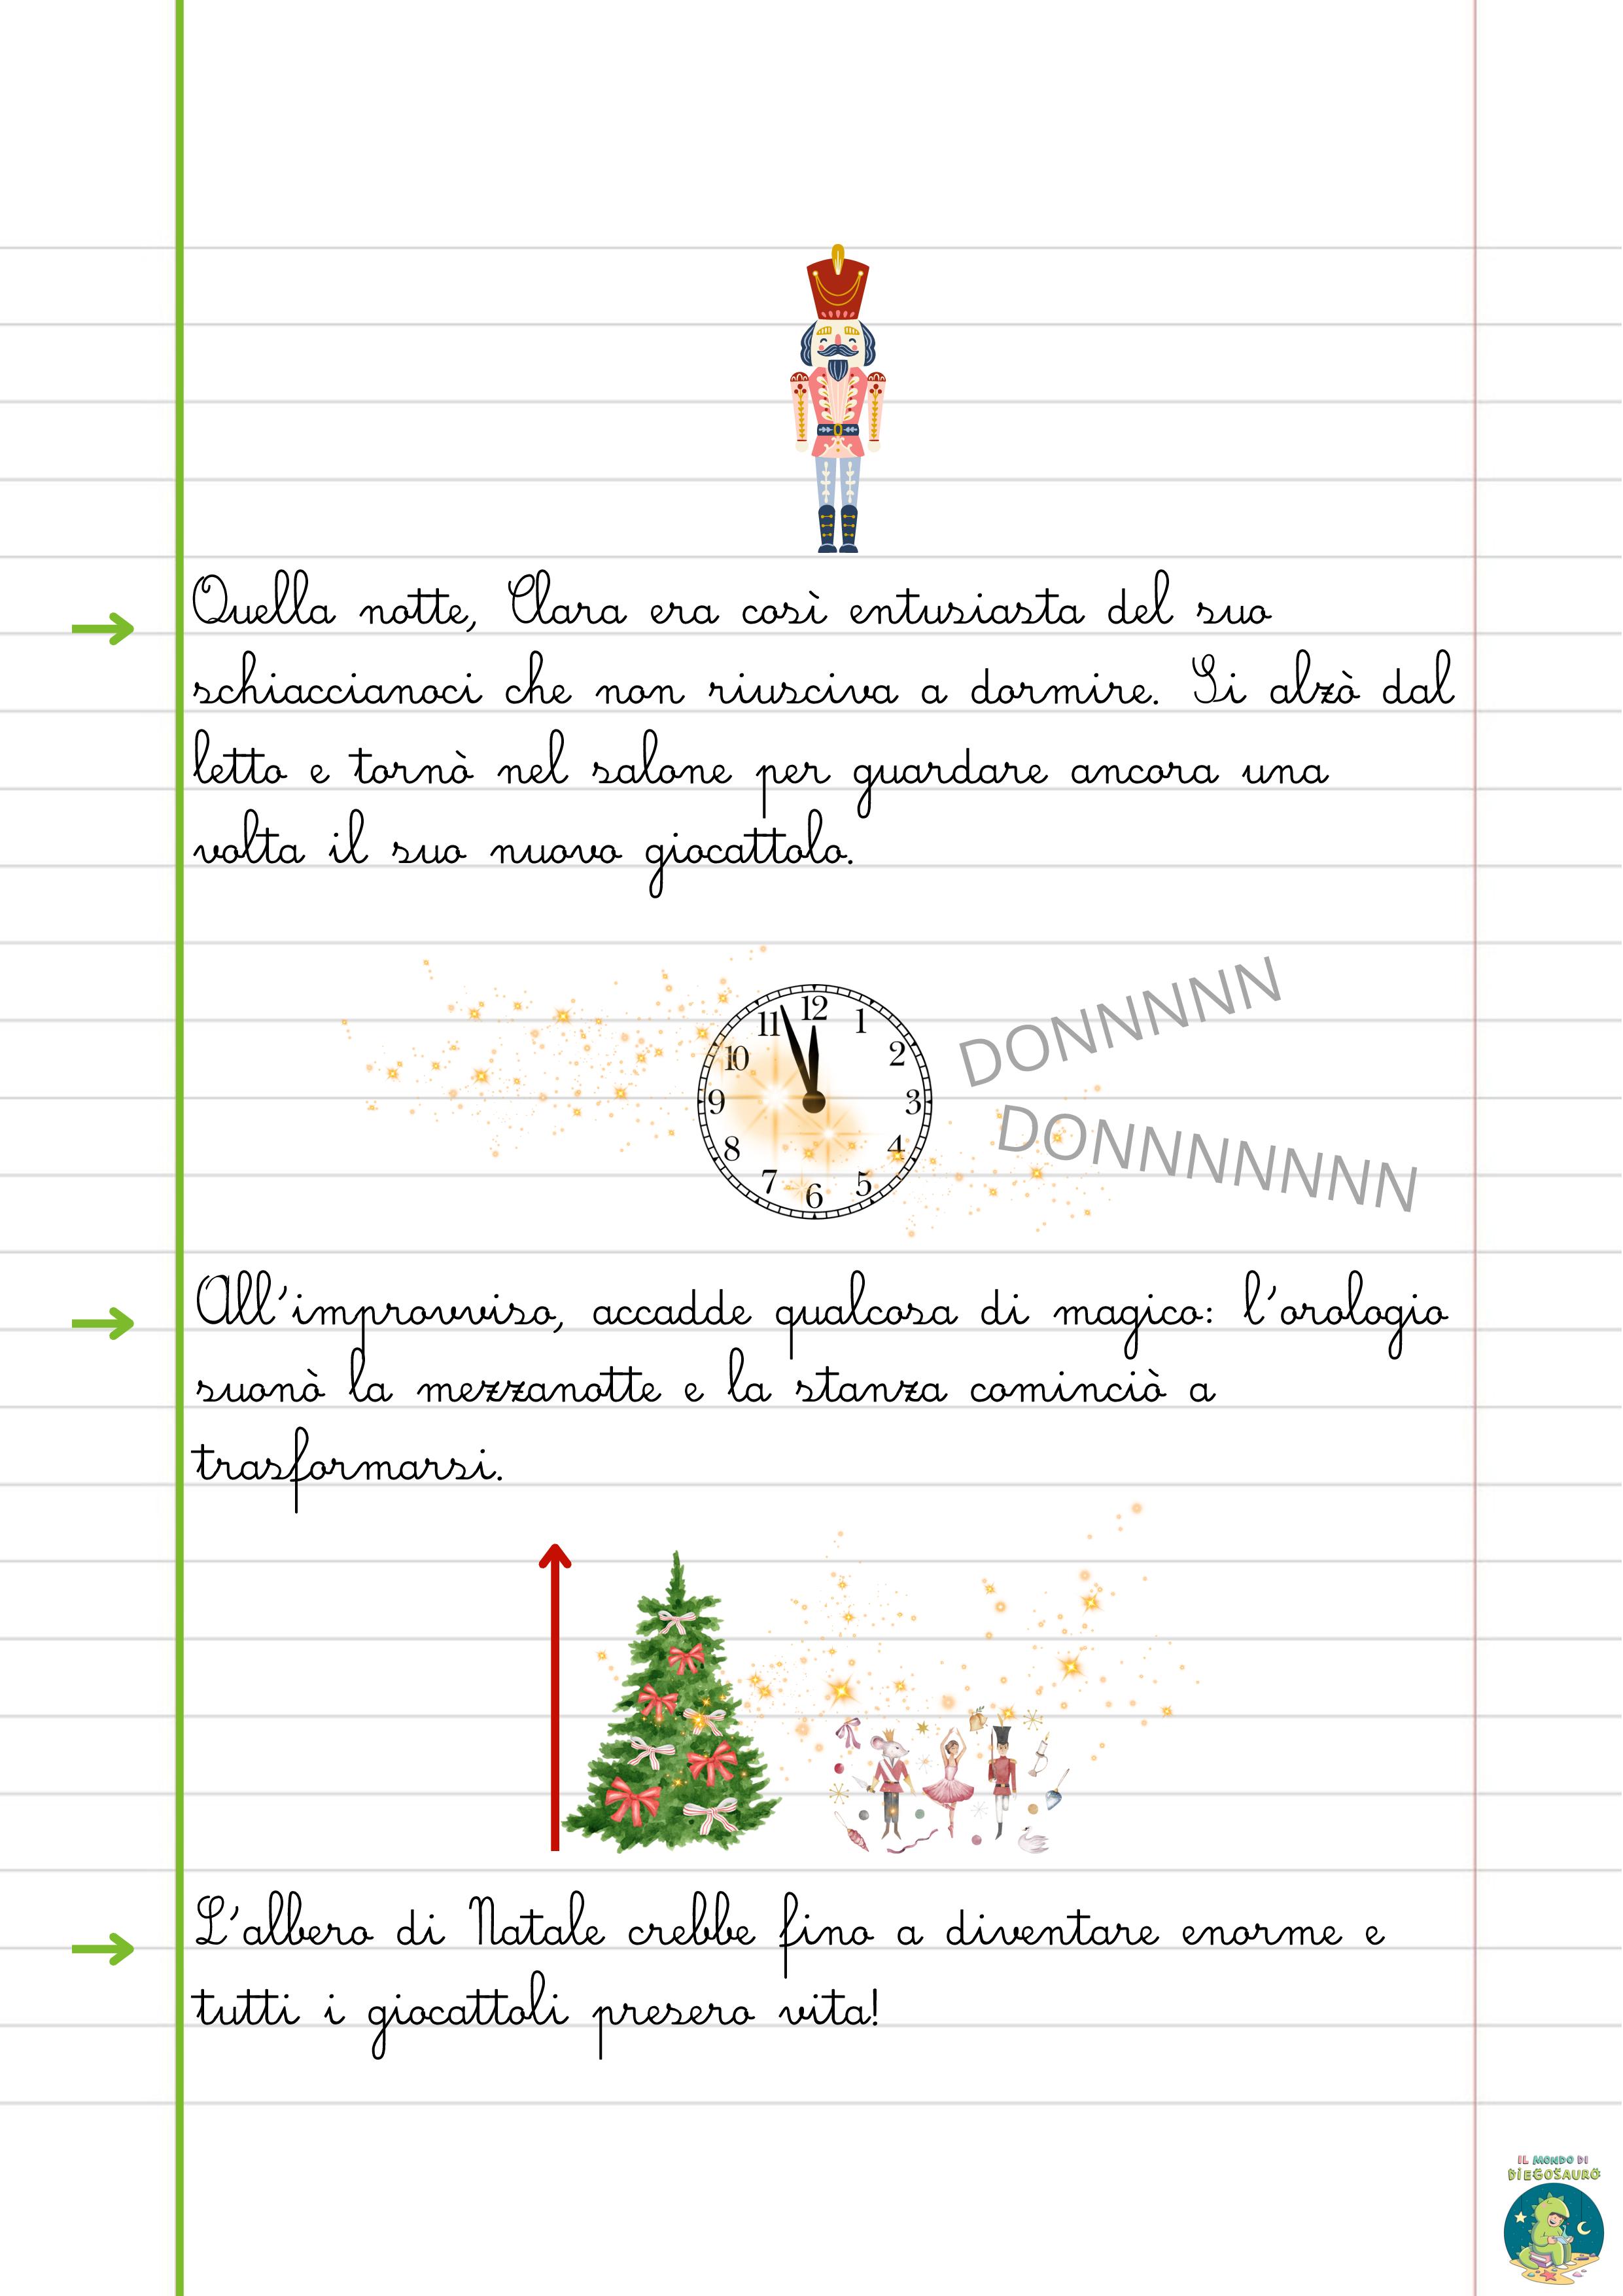 Quella notte, Clara era così entusiasta del suo
schiaccianoci che non riusciva a dormire. Si alzò dal
letto e tornò nel salone per guardare ancora una
volta il suo nuovo giocattolo.
12
11 1
10 2
9 3
8 4
7 5
6
DONNNNNN
DONNNNNNNN
All'improvviso, accadde qualcosa di magico: l'orologio
suonò la mezzanotte e la stanza cominciò a
trasformarsi.
L'albero di Natale crebbe fino a diventare enorme e
tutti i giocattoli presero vita!
IL MONDO DI
DIEGOSAURO